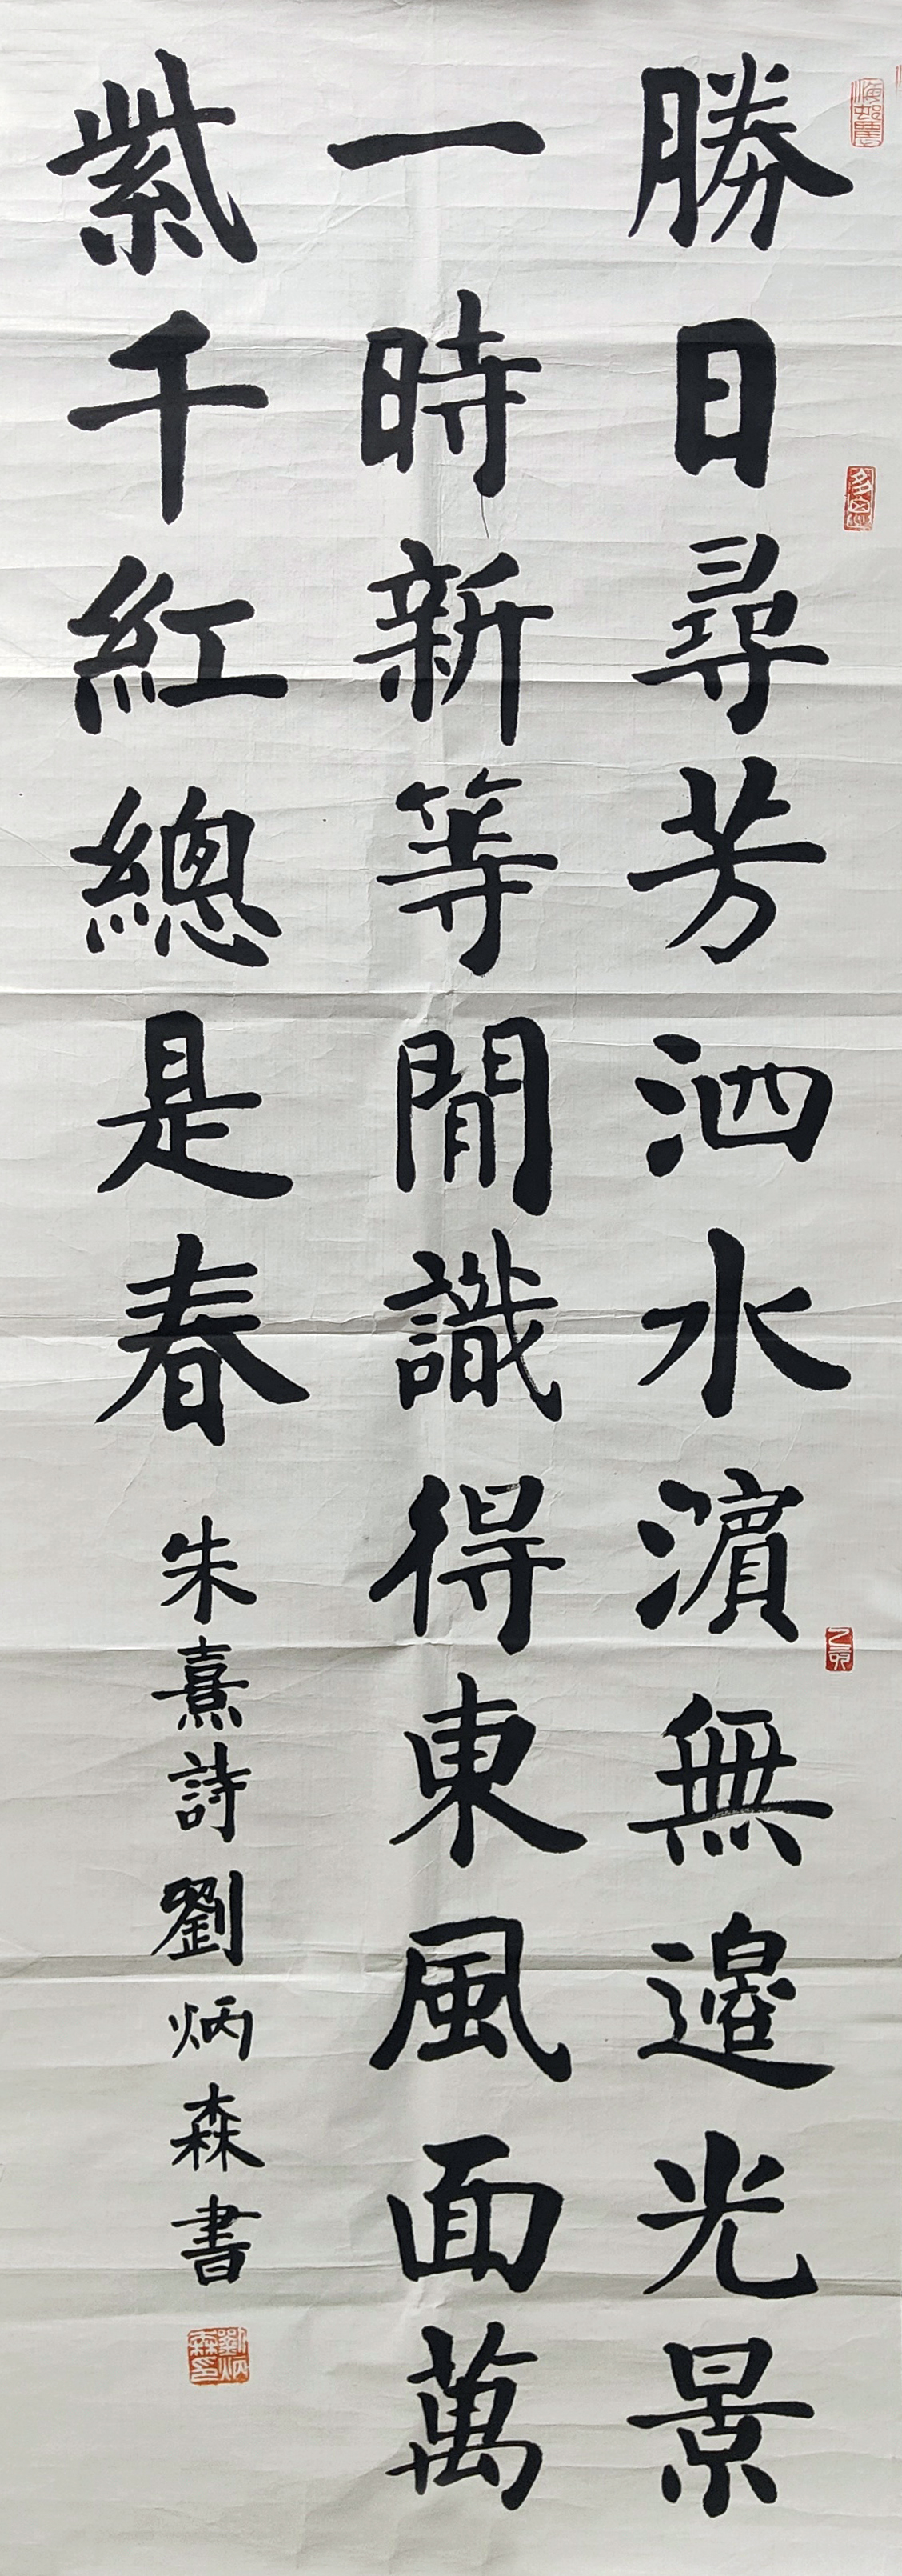 勝日尋芳泗水濵無邉光景
一時新等閒識得東風面萬
紫千紅總是春
朱熹詩劉炳森書
劉炳森印